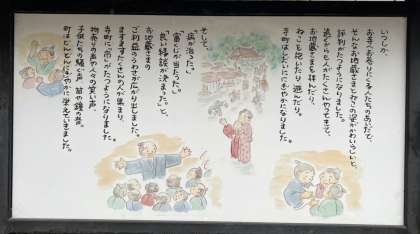 いつしか、
お寺へお参りにくる人たちのあいだで、
そんなお地蔵さまとねこの姿がかわいらしいと、
評判がたつようになりました。
遠くからも人がたくさんやってきて、
お地蔵さまを拝んだり、
ねこを抱いたり 遊んだり。
寺町はしだいににぎやかになりました。
そして、
「病が治った」
「富くじが当たった」
「良い縁談が決まった」と、
お地蔵さまの
ご利益のうわさが広がり出しました。
ますますたくさんの人が集まり、
寺町に「市」がたつようになりました。
物売りの声や人々の笑い声、
子供たちの騒ぐ声、笛や鐘の音。
町はどんどんにぎやかに栄えていきました。